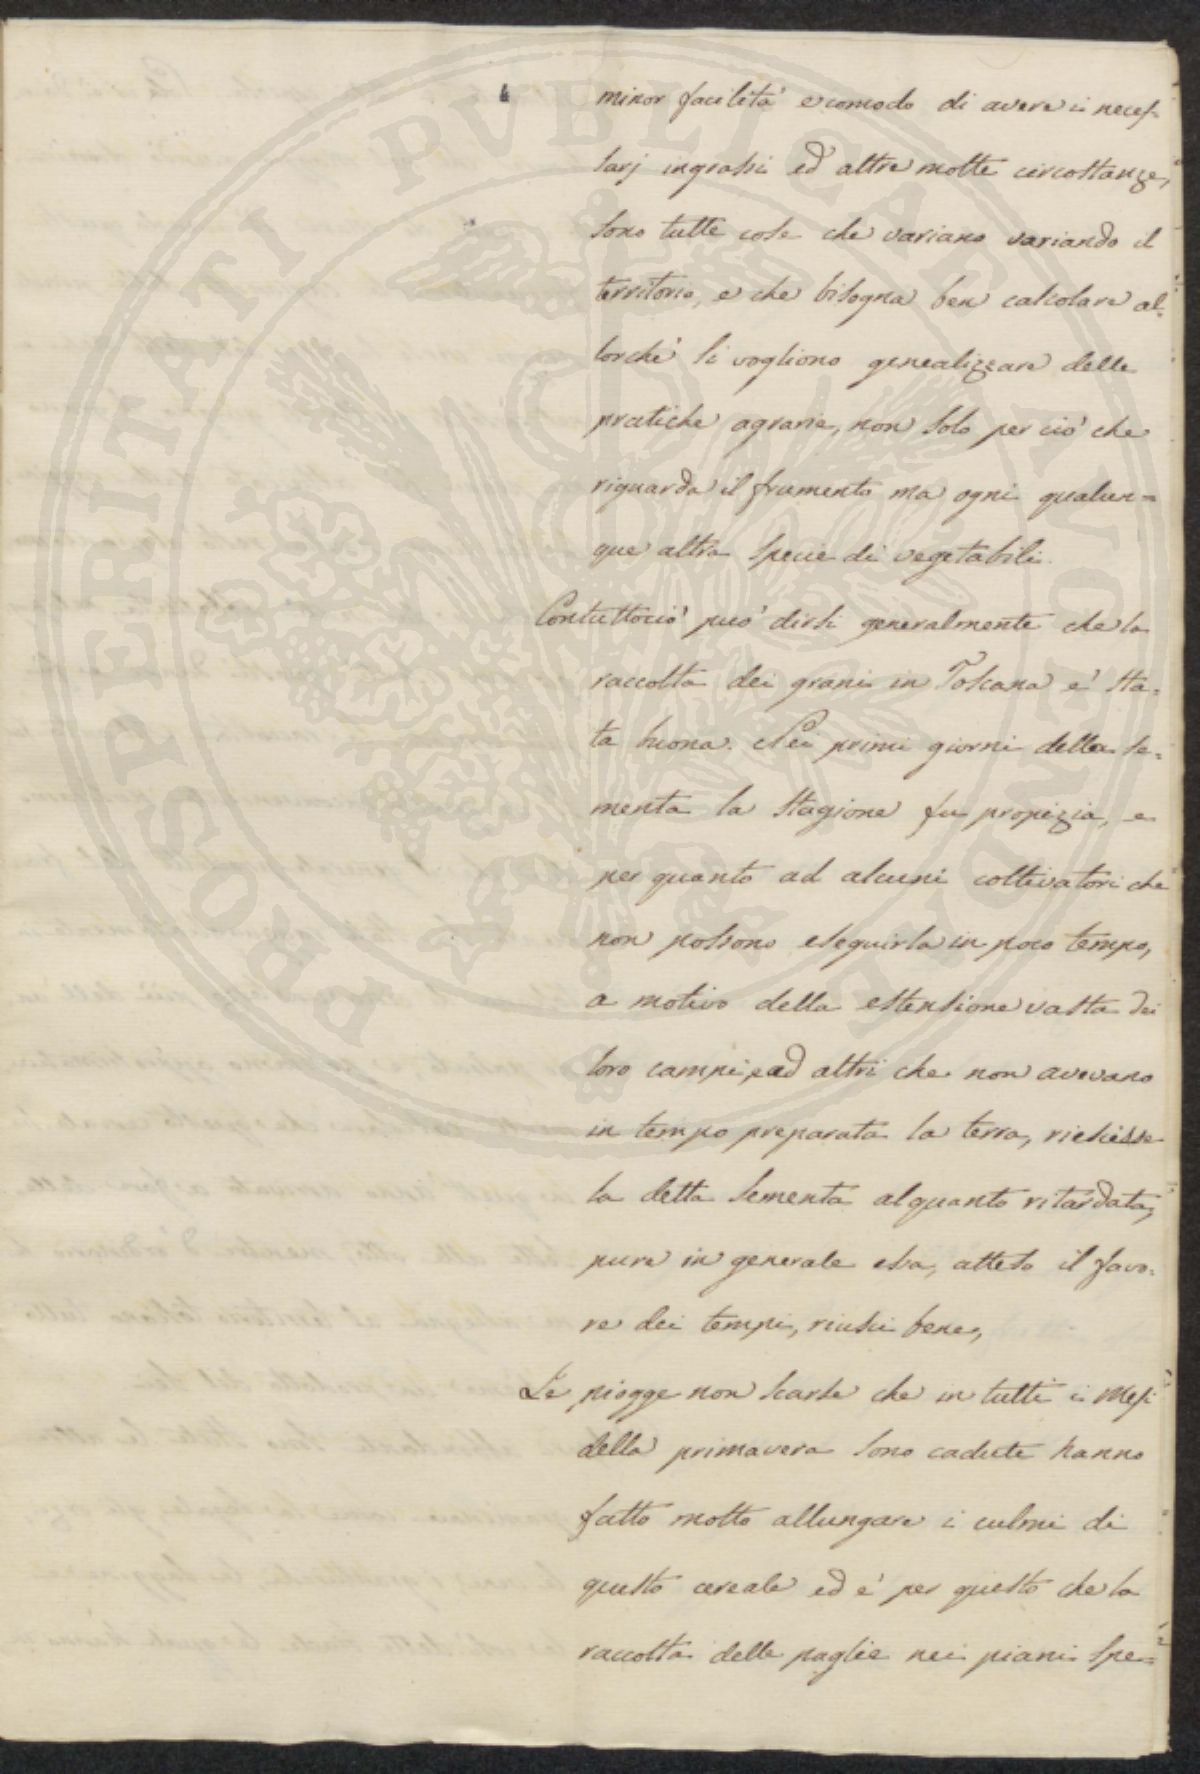 minor facilità e comodo di avere i neces-
sarj ingrassi ed altre molte circostanze,
sono tutte cose che variano variando il
territorio, e che bisogna ben calcolare al-
lorchè si vogliono genealizzare delle
pratiche agrarie, non solo per ciò che
riguarda il frumento ma ogni qualun=
que altra specie di vegetabili.
Contuttociò può dirsi generalmente che la
raccolta dei grani in Toscana è sta-
ta buona. Nei primi giorni della se-
menta la stagione fu propizia, e
per quanto ad alcuni coltivatori che
non possono eseguirla in poco tempo,
a motivo della estensione vasta dei
loro campi, ad altri che non avevano
in tempo preparata la terra, riescisse
la detta sementa alquanto ritardata,
pure in generale essa, atteso il favo-
re dei tempi, riuscì bene,
Le piogge non scarse che in tutti i mesi
della primavera sono cadute hanno
fatto molto allungare i culmi di
questo cereale ed è per questo che la
raccolta delle paglie nei piani spe=
PROSPERITATI PVBLICAE AVGENDAE